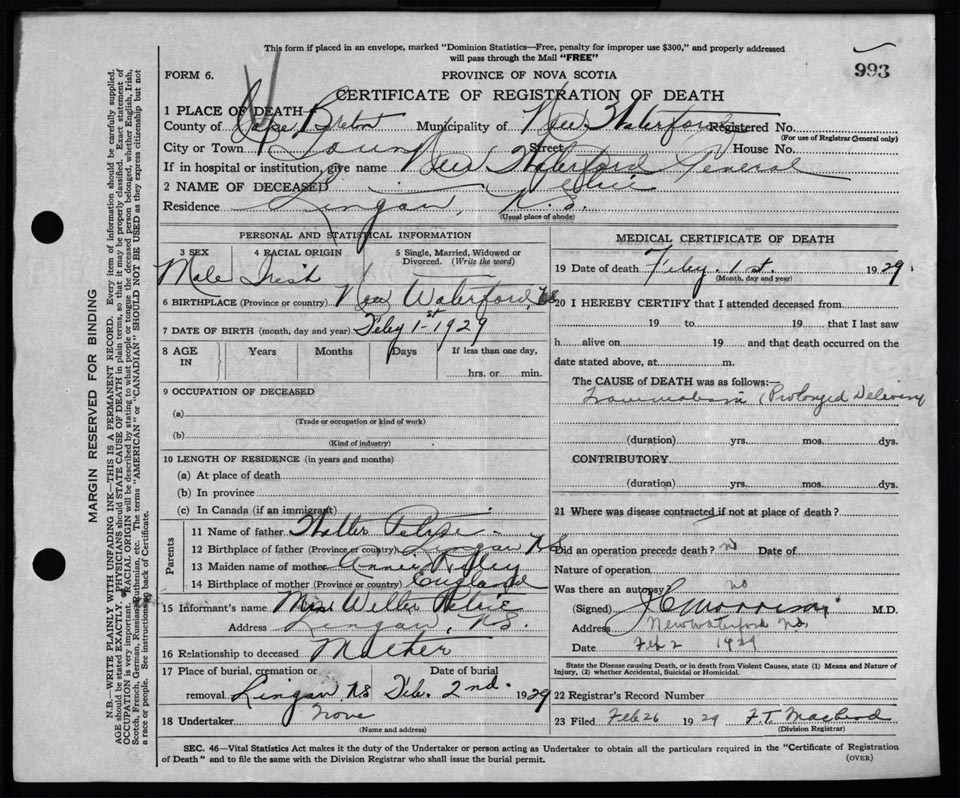 This form if placed in an envelope, marked "Dominion Statistics—Free, penalty for improper use $300," and properly addressed
will pass through the Mail "FREE"
993
FORM 6.
PROVINCE OF NOVA SCOTIA
CERTIFICATE OF REGISTRATION OF DEATH
1 PLACE OF DEATH—
County of Cape Breton Municipality of New Waterford Registered No.
(For use of Registrar General only)
City or Town Town Street House No.
If in hospital or institution, give name New Waterford General
2 NAME OF DECEASED Petrie
Residence Lingan, N.S.
(Usual place of abode)
PERSONAL AND STATISTICAL INFORMATION
3 SEX 4 RACIAL ORIGIN 5 Single, Married, Widowed or
Divorced. (Write the word)
Male Irish
6 BIRTHPLACE (Province or country) New Waterford, N.S.
7 DATE OF BIRTH (month, day and year) Feby 1st 1929
8 AGE IN Years Months Days If less than one day,
hrs. or min.
9 OCCUPATION OF DECEASED
(a)
(Trade or occupation or kind of work)
(b)
(Kind of industry)
10 LENGTH OF RESIDENCE (in years and months)
(a) At place of death
(b) In province
(c) In Canada (if an immigrant)
Parents
11 Name of father Walter Petrie
12 Birthplace of father (Province or country) Lingan N.S
13 Maiden name of mother Annie
14 Birthplace of mother (Province or country) England
15 Informant's name Mrs Walter Petrie
Address Lingan, N.S.
16 Relationship to deceased Mother
17 Place of burial, cremation or Date of burial
removal. Lingan N.S Feb. 2nd. 1929
18 Undertaker None
(Name and address)
MEDICAL CERTIFICATE OF DEATH
19 Date of death Feby. 1st. 1929.
(Month, day and year)
20 I HEREBY CERTIFY that I attended deceased from
19 to 19 that I last saw
h alive on 19 and that death occurred on the
date stated above, at m.
The CAUSE of DEATH was as follows:—
(Prolonged Delivery
(duration) yrs. mos. dys.
CONTRIBUTORY
(duration) yrs. mos. dys.
21 Where was disease contracted if not at place of death?
Did an operation precede death? no Date of
Nature of operation
Was there an autopsy? no
(Signed) Morrison M.D.
Address New Waterford N.S.
Date Feb 2 1929
State the Disease causing Death, or in death from Violent Causes, state (1) Means and Nature of
Injury, (2) whether Accidental, Suicidal or Homicidal.
22 Registrar's Record Number
23 Filed Feb 26 1929 F.T. MacLeod
(Division Registrar)
SEC. 46—Vital Statistics Act makes it the duty of the Undertaker or person acting as Undertaker to obtain all the particulars required in the "Certificate of Registration
of Death" and to file the same with the Division Registrar who shall issue the burial permit.
(OVER)
MARGIN RESERVED FOR BINDING
N.B.—WRITE PLAINLY WITH UNFADING INK—THIS IS A PERMANENT RECORD. Every item of information should be carefully supplied.
AGE should be stated EXACTLY. PHYSICIANS should STATE CAUSE OF DEATH in plain terms, so that it may be properly classified. Exact statement of
OCCUPATION is very important. RACIAL ORIGIN will be described by stating to what people or tongue the deceased person belonged, whether English, Irish,
Scotch, French, German, Russian, Ruthenian, etc. The terms "AMERICAN" or "CANADIAN" SHOULD NOT BE USED as they express citizenship but not
a race or people. See instructions on back of Certificate.